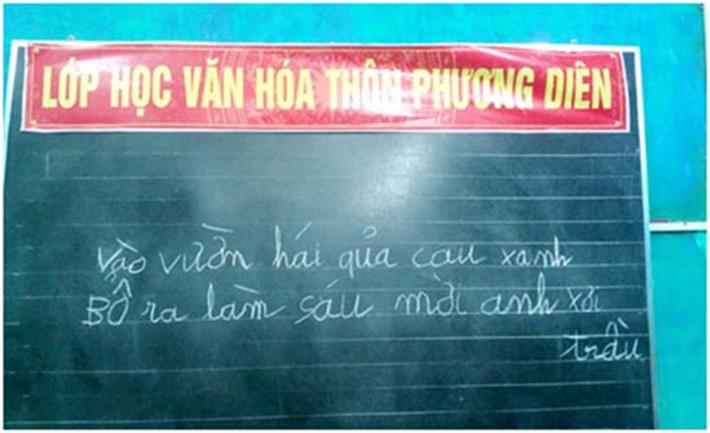 LỚP HỌC VĂN HÓA THÔN PHƯƠNG DIÊN
Vào vườn hái quả cau xanh
Bổ ra làm sáu mời anh xơi
trầu